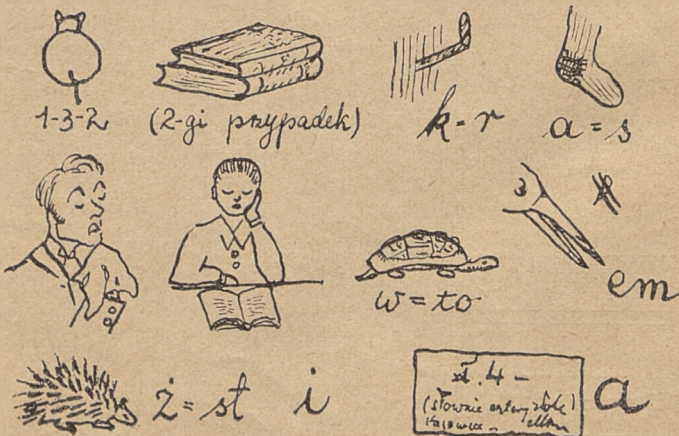 1-3-2 (2-gi przypadek) k=r a=s
w=to em
ż=st i a
zł. 4 –
(słownie cztery złote)